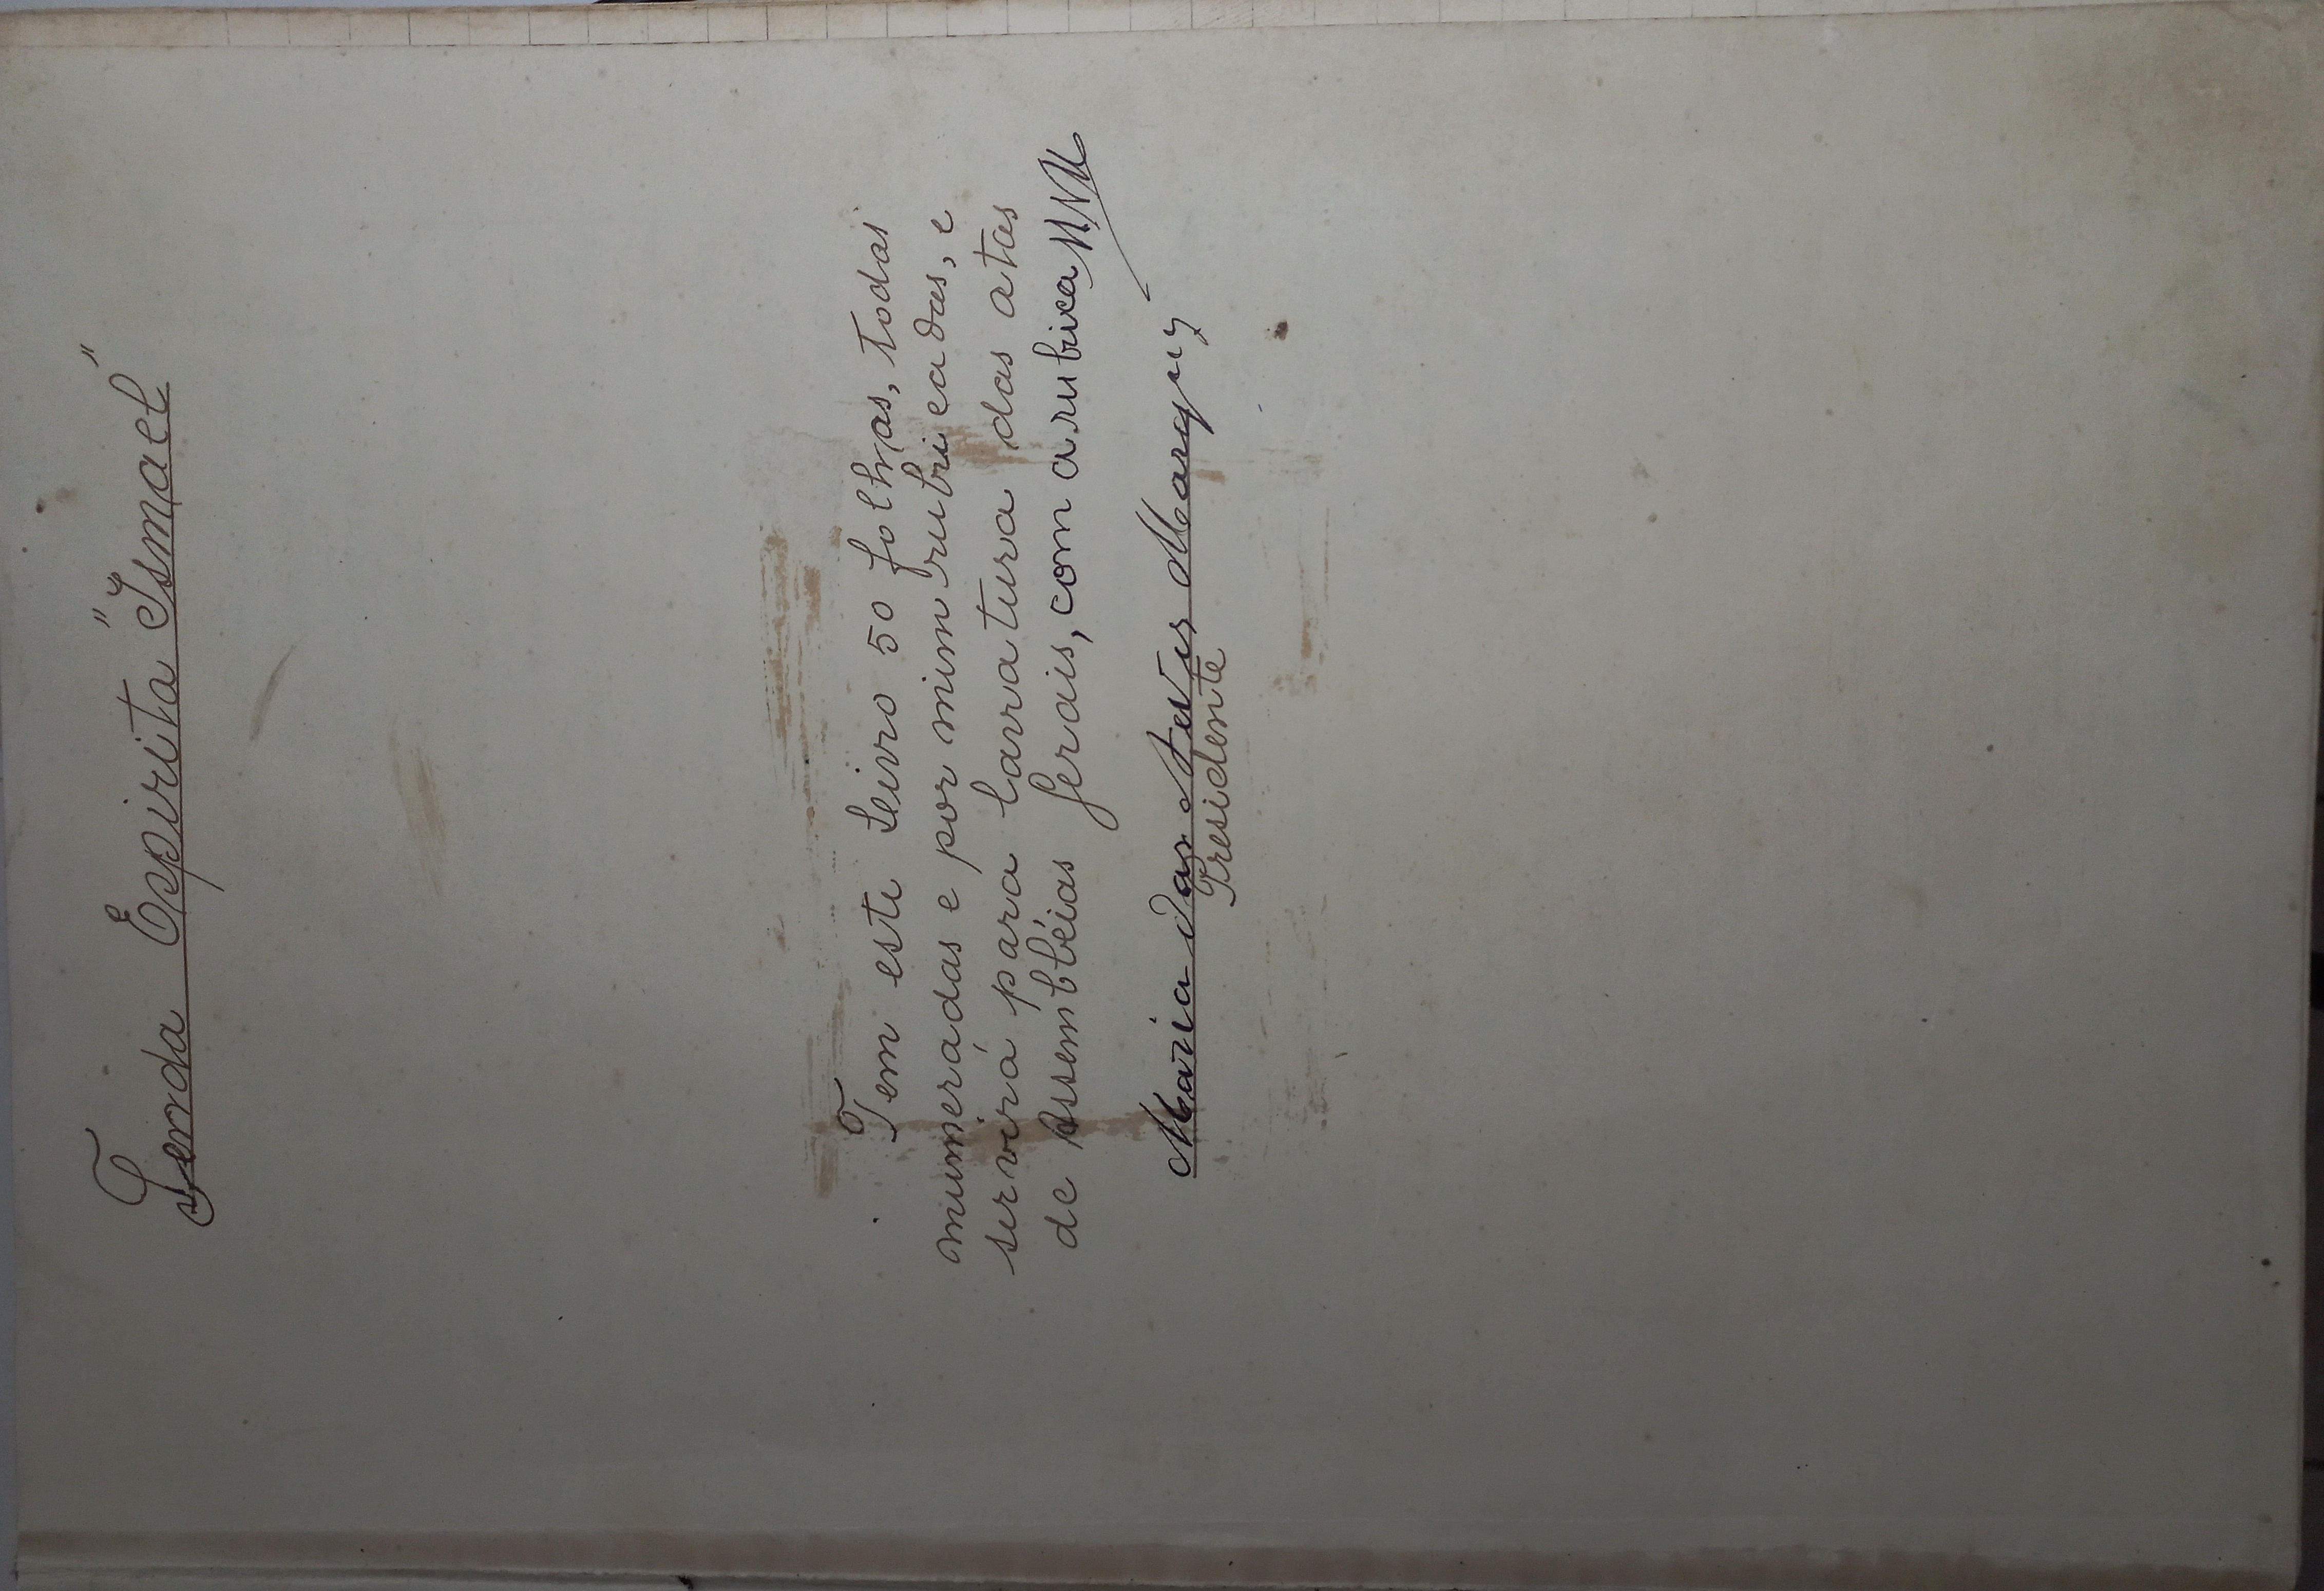 Tenda Espirita "Ismael"
Tem este Livro 50 folhas, todas
numeradas e por mim rubricadas, e
servirá para lavratura das atas
de Assembléias Gerais, com a rubrica
Maria das Neves Marques
Presidente